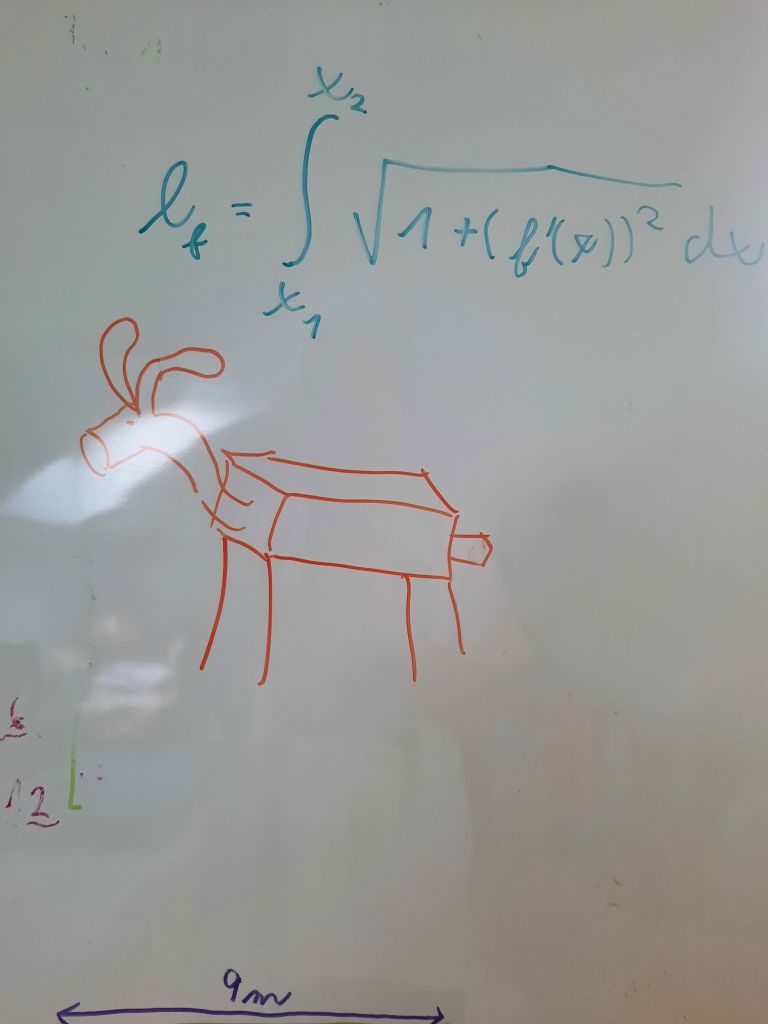 l_f = ∫_{x_1}^{x_2} √(1+(f'(x))²) dx
2
9m